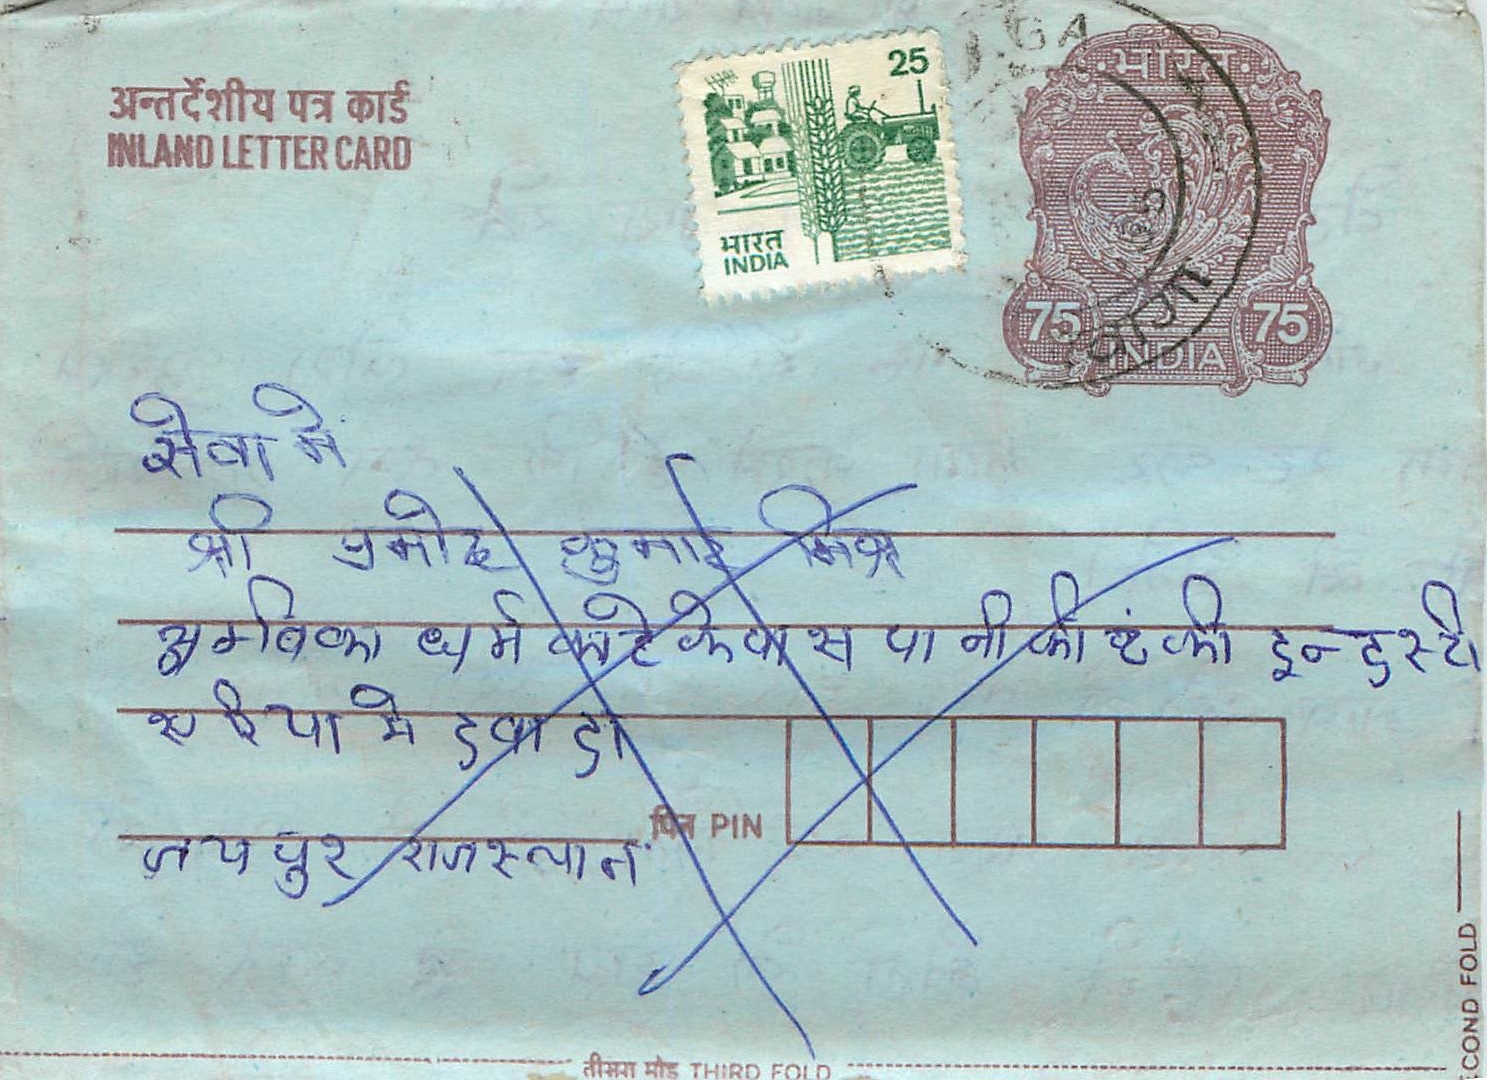 अन्तर्देशीय पत्र कार्ड
INLAND LETTER CARD
25
भारत
INDIA
भारत
75 75
INDIA
सेवा में
श्री प्रमोद कुमार मिश्र
अम्बिका धर्म काटे के पास पानी की टंकी इन्डस्टी
एरिया मे
पिन PIN
जयपुर राजस्थान
तीसरा मोड़ THIRD FOLD
SECOND FOLD